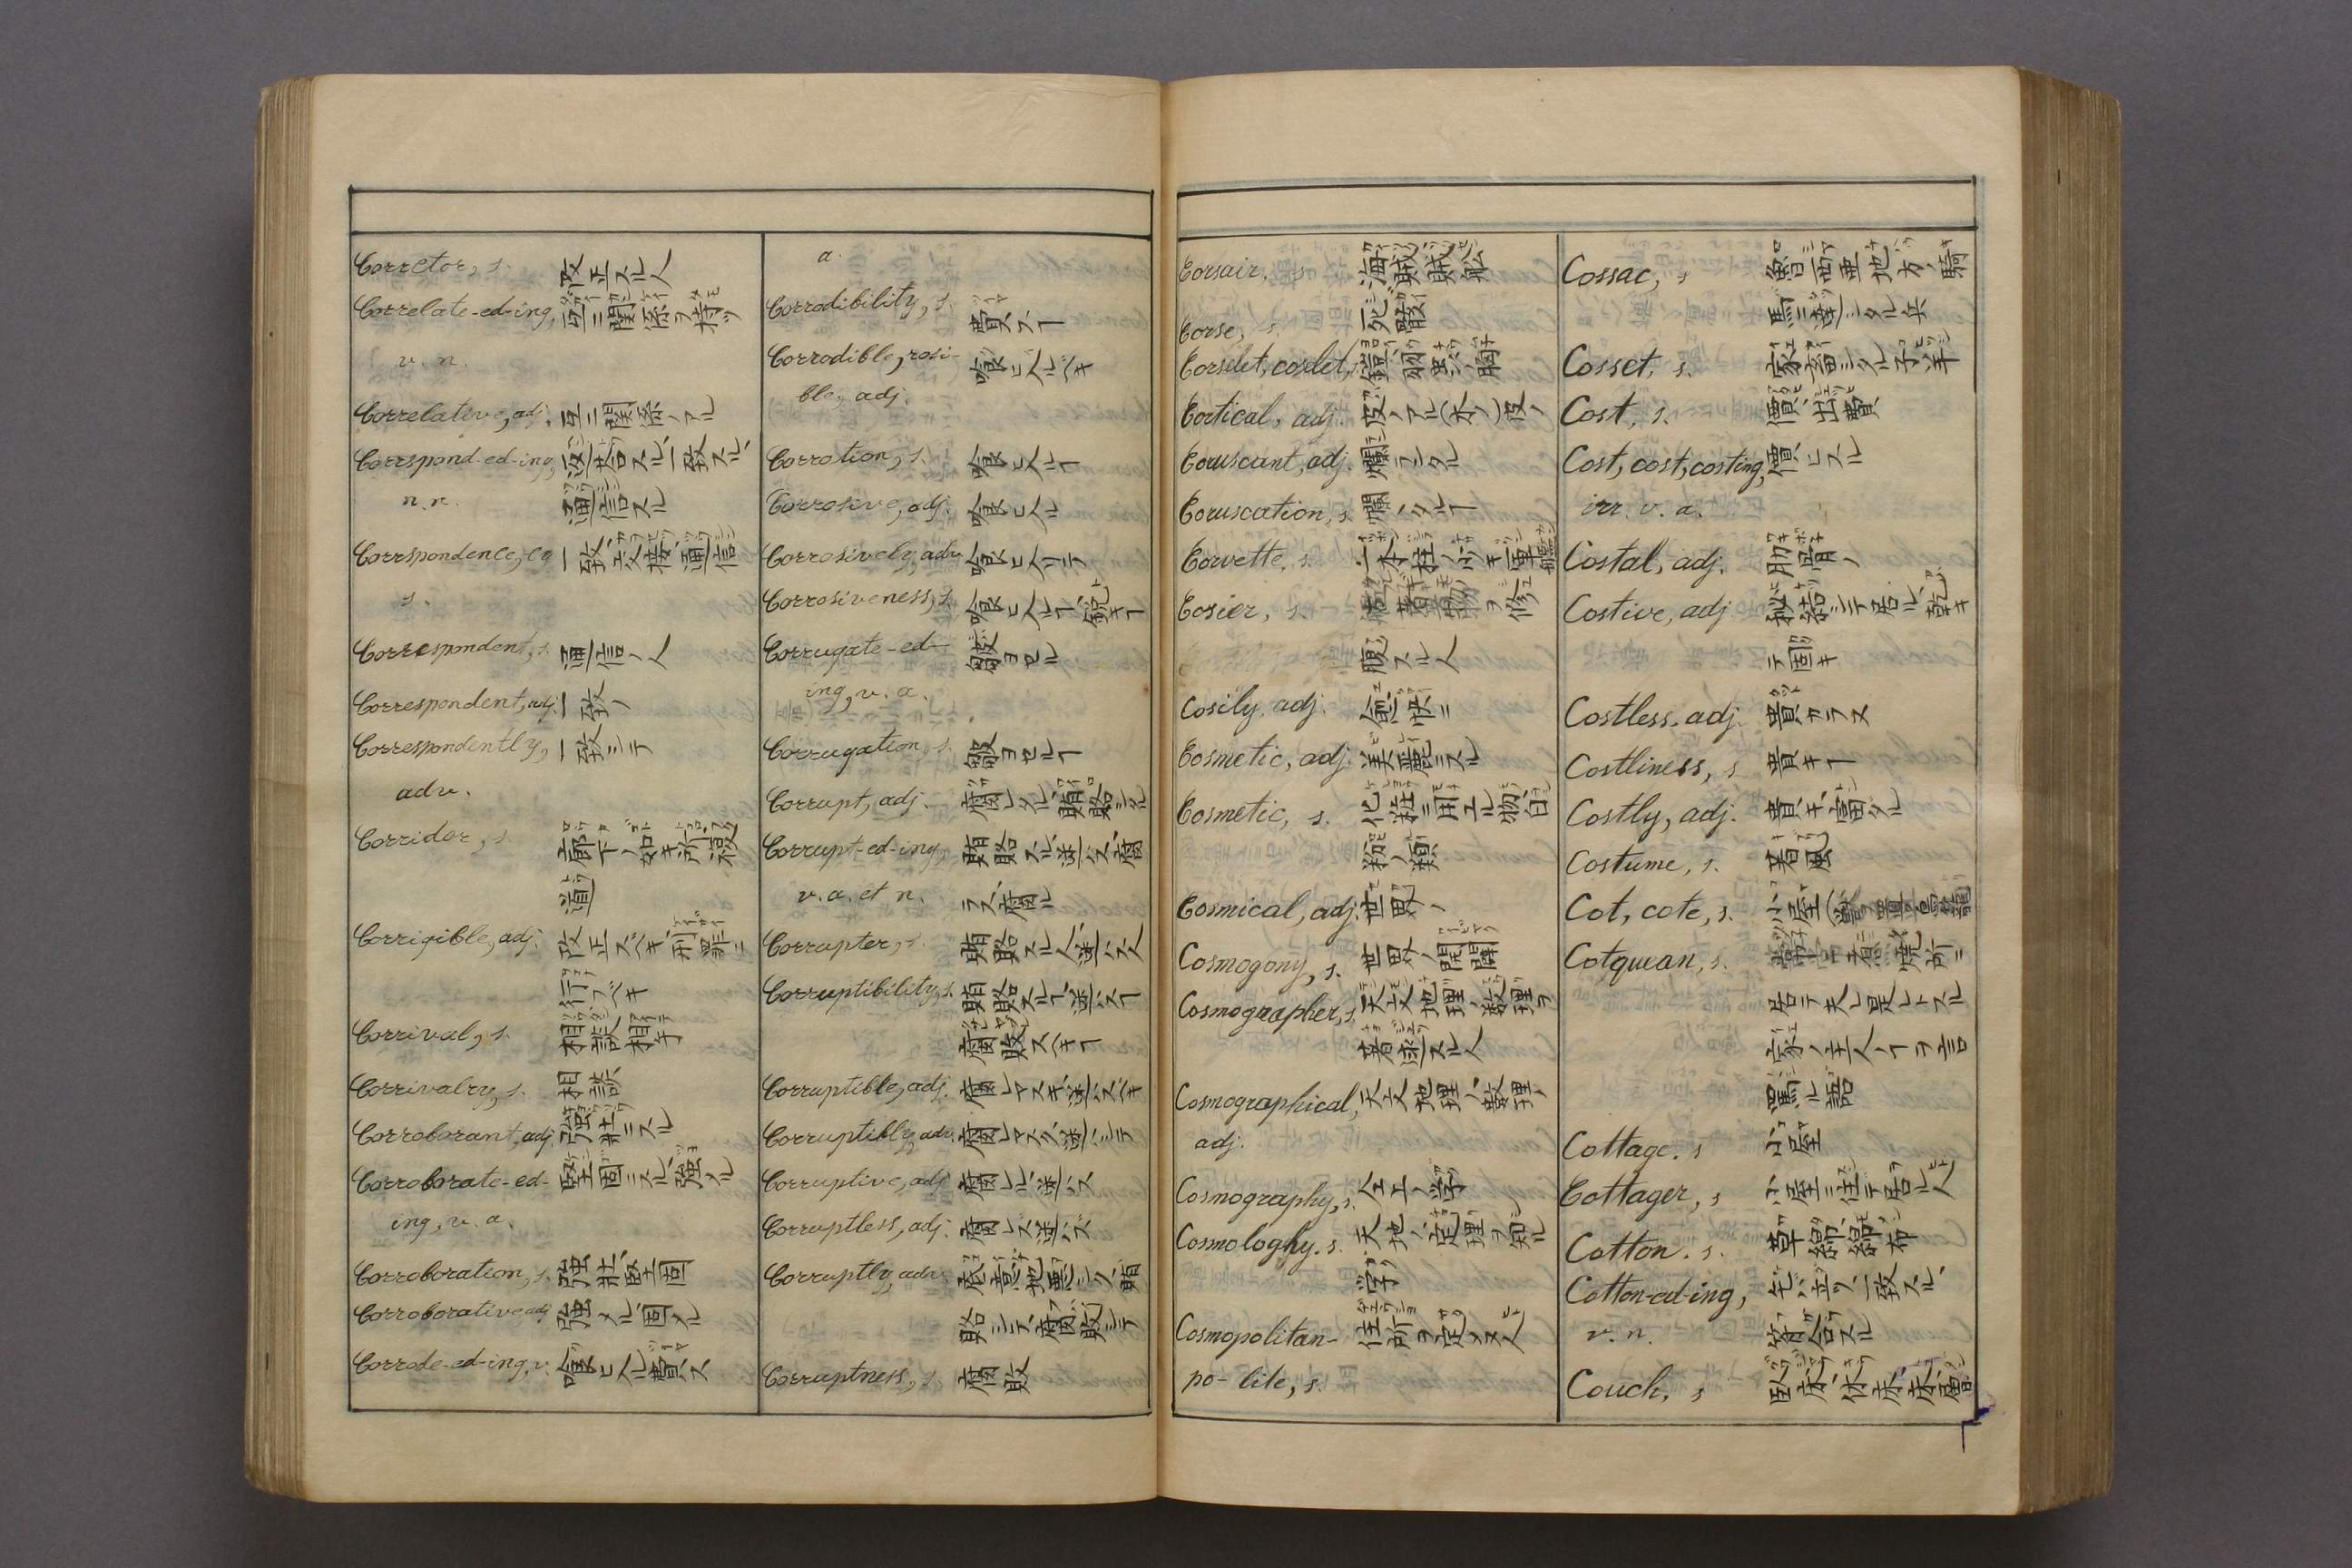 Corretor, s. 改正スル人
Correlate-ed-ing, 互ニ関係ヲ持ツ
v. n.
Correlative, adj. 互ニ関係ノアル
Correspond-ed-ing, 返答スル、一致スル、
n. n. 通信スル
Correspondence, cy 一致、交接、通信
s.
Correspondent, s. 通信ノ人
Correspondent, adj. 一致ノ
Correspondently, 一致シテ
adv.
Corridor, s. 廊下ノ如キ所
道
Corrigible, adj. 改正スベキ、刑罪ニ
行フベキ
Corrival, s. 相談相手
Corrivalry, s. 相談
Corroborant, adj. 強壮ニスル
Corroborate-ed- 堅固ニスル、強メル
ing, v. a.
Corroboration, s. 強壮、堅固
Corroborative adj 強メル、固メル
Corrode-ed-ing, v. 喰ヒ入ル、費ス
a.
Corrodibility, s. 費スヿ
Corrodible, rosi- 喰ヒ入ルベキ
ble, adj.
Corrotion, s. 喰ヒ入ルヿ
Corrosive, adj. 喰ヒ入ル
Corrosively, adv. 喰ヒ入リテ
Corrosiveness, s. 喰ヒ入ルヿ、鋭キヿ
Corrugate-ed- 皺ヨセル
ing, v. a.
Corrugation, s. 皺ヨセルヿ
Corrupt, adj. 腐レタル、賄賂シタル
Corrupt-ed-ing, 賄賂スル、迷ハス、腐
v. a. et n. ラス、腐ル
Corrupter, s. 賄賂スル人、迷ハス人
Corruptibility, s. 賄賂スルヿ、迷ハスヿ
腐敗スベキヿ
Corruptible, adj. 腐レヤスキ、迷ハスベキ
Corruptibly, adv. 腐レヤスク、迷ハシテ
Corruptive, adj 腐レル、迷ハス
Corruptless, adj. 腐レズ、迷ハズ
Corruptly, adv. 意地悪シク、賄
賂シテ、腐敗シテ
Corruptness, s. 腐敗
Corsair, s. 海賊、賊船
Corse, s. 死骸
Corselet, coslet, s. 鎧
Cortical, adj. 皮ノアル(木ノ)皮ノ
Coruscant, adj. 爛ラシタル
Coruscation, s.
Corvette, s. 一本柱ノ小キ軍艦
Cosier, s. 着物ヲ修
覆スル人
Cosily, adj. 愉快ニ
Cosmetic, adj. 美麗ニスル
Cosmetic, s. 化粧ニ用エル物、白
粉ノ類
Cosmical, adj. 世界ノ
Cosmogony, s. 世界ノ開闢
Cosmographer, s. 天文地理ノ数理ヲ
著述スル人
Cosmographical, 天文地理ノ数理ノ
adj.
Cosmography, s. 仝上ノ学
Cosmologhy. s. 天地ノ定理ヲ知ル
学
Cosmopolitan- 住所ヲ定メヌ人
po- lite, s.
Cossac, s 魯西亜地方ノ騎
馬ニ達シタル兵
Cosset, s. 家ニ畜シタル子羊
Cost, s. 價、出費
Cost, cost, costing, 價ヒスル
irr. v. a.
Costal, adj. 肋骨ノ
Costive, adj 秘結シテ居ル、乾キ
テ固キ
Costless. adj. 貴カラヌ
Costliness, s 貴キヿ
Costly, adj. 貴キ、富タル
Costume, s. 着風
Cot, cote, s. 小屋
Cotquean, s.
居テ夫レ是レトスル
家ノ主人ノヿヲ云
罵ル語
Cottage. s 小屋
Cottager, s 小屋ニ住テ居ル人
Cotton. s. 草綿、綿布
Cotton-ed-ing, 毛ハ立ツ、一致スル、
v. n.
Couch, s 臥床、休床